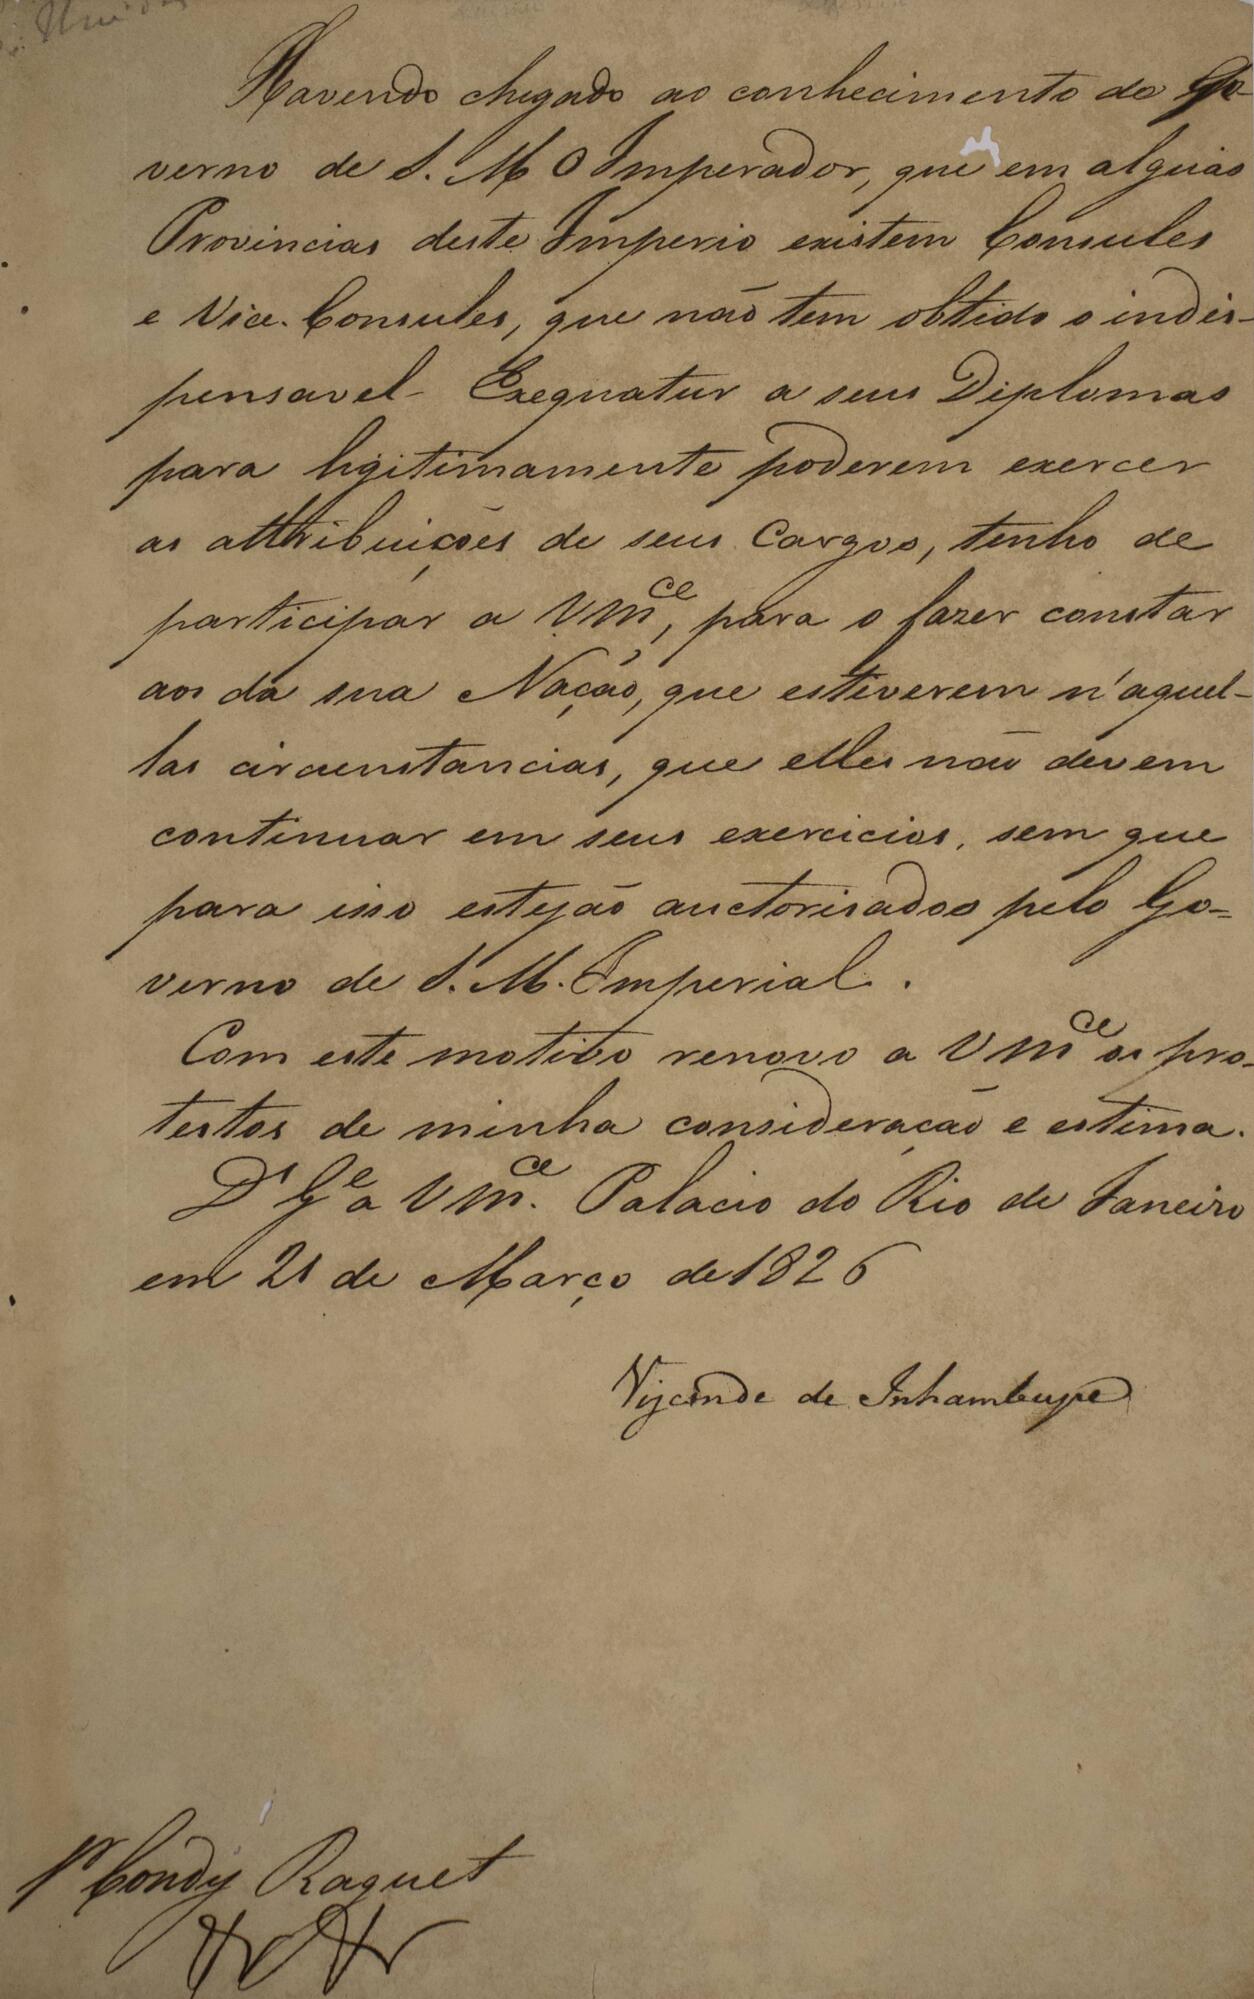 Havendo chegado ao conhecimento do Go-
verno de S. M. O Imperador, que em alguãs
Provincias deste Imperio existem Consules
e Vice-Consules, que não tem obtido o indis-
pensavel Exequatur a seus Diplomas
para legitimamente poderem exercer
as attribuições de seus Cargos, tenho de
participar a VMce, para o fazer constar
aos da sua Nação, que estiverem n'aquel-
las circunstancias, que elles não devem
continuar em seus exercicios, sem que
para isso estejão auctorisados pelo Go-
verno de S. M. Imperial.
Com este motivo renovo a VMce os pro-
testos de minha consideração e estima.
Ds Ge a VMce. Palacio do Rio de Janeiro
em 21 de Março de 1826
Visconde de Inhambupe
Sr Condy Raguet